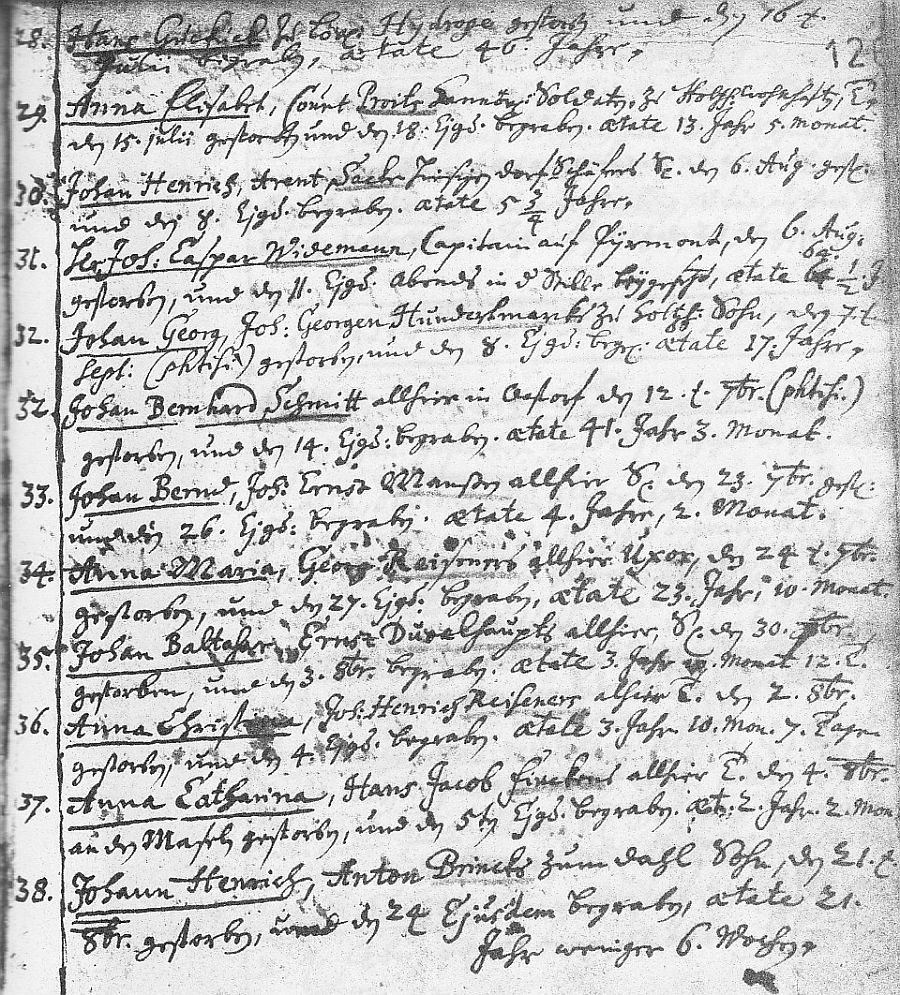 28. Hans Hydrope gestorb. und den 16 t.
Julii begrab., ætate 46. Jahre,
12
29. Anna Elisabet, Soldaten, zu Tr.
den 15. julii gestorben und den 18. Ejsd. begraben. ætate 13. Jahr 5. Monat.
30. Johan Henrich, Arent Dorf Schäfers S. den 6. Aug. gest.
und den 8. Ejsd. begraben. ætate 5 3/4 Jahre,
31. Hr. Joh: Caspar Widemann, Capitain auf Pyrmont, den 6. Aug:
gestorben, und den 11. Ejsd. Abends in d Stille beygesetzt, ætate 64 1/2 J
32. Johan Georg, Joh: Georgen Hundertmarks zu Holtz: Sohn, den 7. t.
Sept: (phtisi) gestorben, und den 8. Ejsd: begr. ætate 17. Jahre,
32. Johan Bernhard Schmitt allhier in den 12. t. 7br. (phtisi.)
gestorben, und den 14. Ejsd: begraben. ætate 41. Jahr 3. Monat.
33. Johan Bernd, Joh: Ernst allhier S. den 23. 7br. gest:
und den 26. Ejsd: begraben. ætate 4. Jahre, 2. Monat.
34. Anna Maria, Georg Reiseners allhier Uxor, den 24 t. 7br.
gestorben, und den 27. Ejsd: begraben, ætate 23. Jahr, 10. Monat.
35. Johan Baltzhar, Ernst Duvalhaupts allhier, S. den 30. 7br.
gestorben, und den 3. 8br. begraben. ætate 3. Jahr Monat 12. T.
36. Anna Christina, Joh: Henrich Reiseners alhier T. den 2. 8br.
gestorben, und den 4. Ejsd. begraben. ætate 3. Jahr 10. Mon. 7. Tagen
37. Anna Catharina, Hans Jacob Finckens allhier T. den 4. 8br.
an den Maseln gestorben, und den 5ten Ejsd. begraben. æt: 2. Jahr. 2. Mon
38. Johann Henrich, Anton Brincks zum Dahl Sohn, den 21. t.
8br. gestorben, und den 24 Ejusdem begraben, ætate 21.
Jahr weniger 6. Wochen,